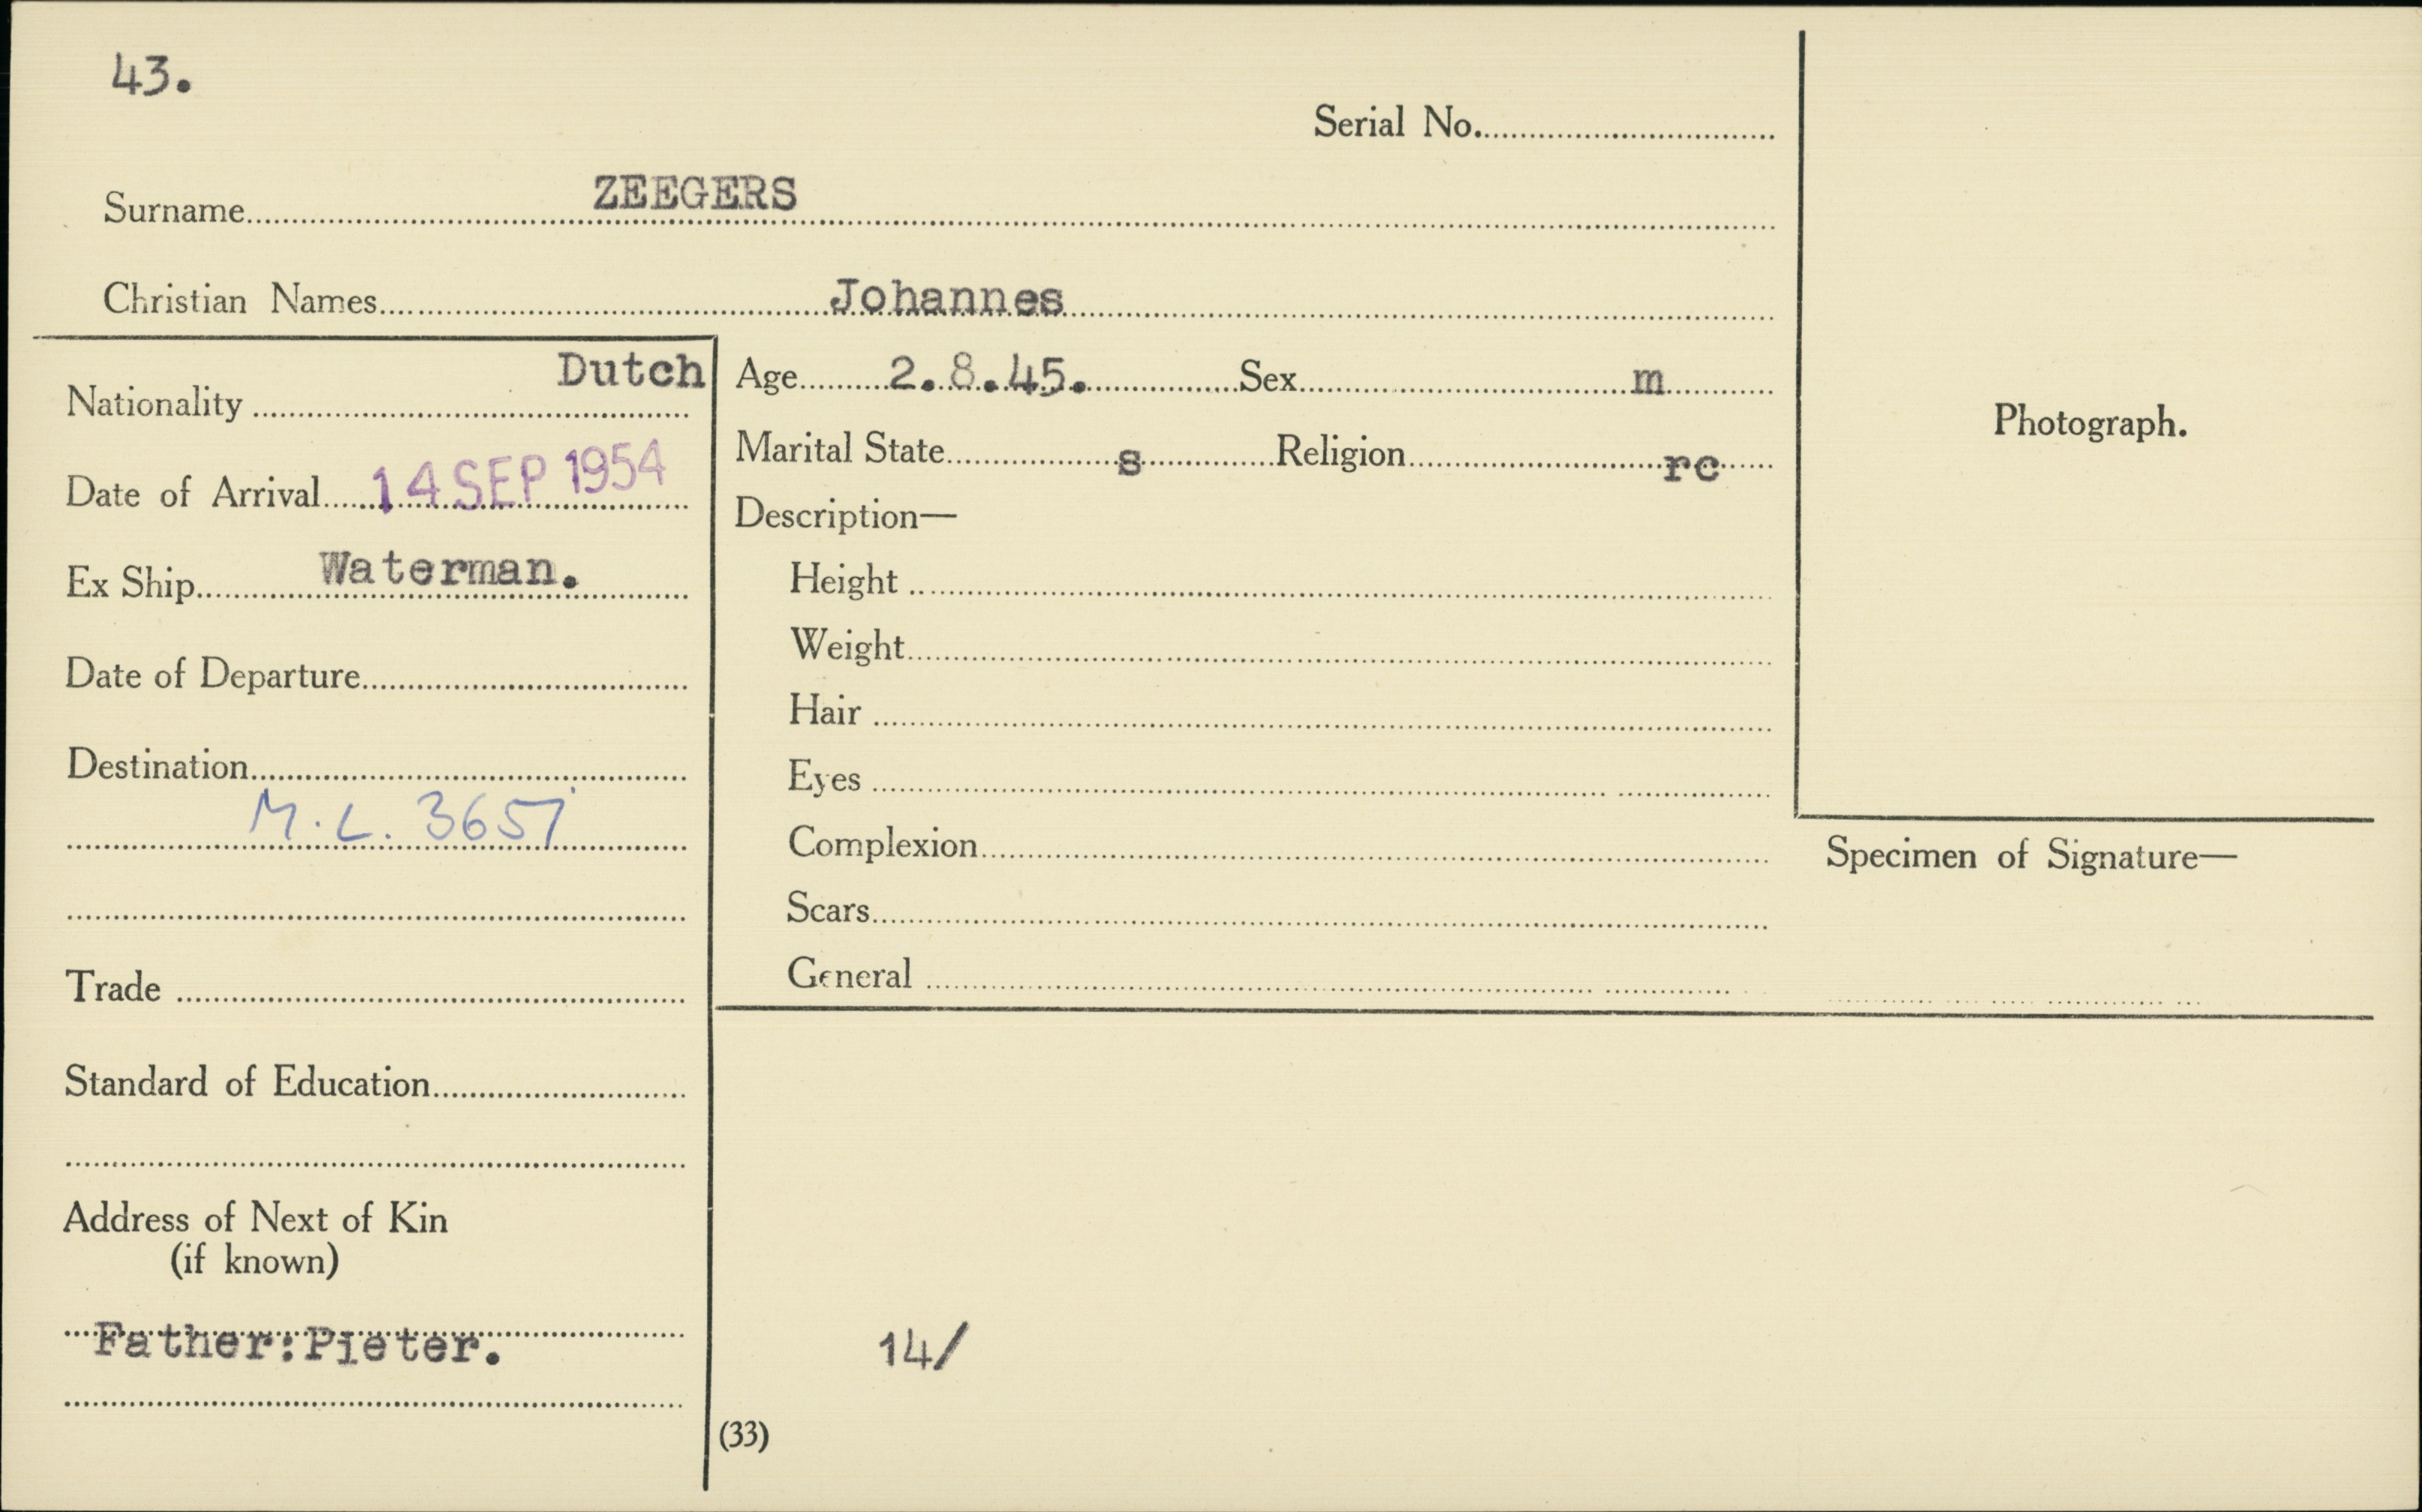 43.
Serial No.
Surname ZEEGERS
Christian Names Johannes
Nationality Dutch
Date of Arrival 14 SEP 1954
Ex Ship Waterman.
Date of Departure
Destination
M.L. 3657
Trade
Standard of Education
Address of Next of Kin
(if known)
Father:Pieter.
Age 2.8.45. Sex m
Marital State s Religion rc
Description—
Height
Weight
Hair
Eyes
Complexion
Scars
General
Photograph.
Specimen of Signature—
14/
(33)